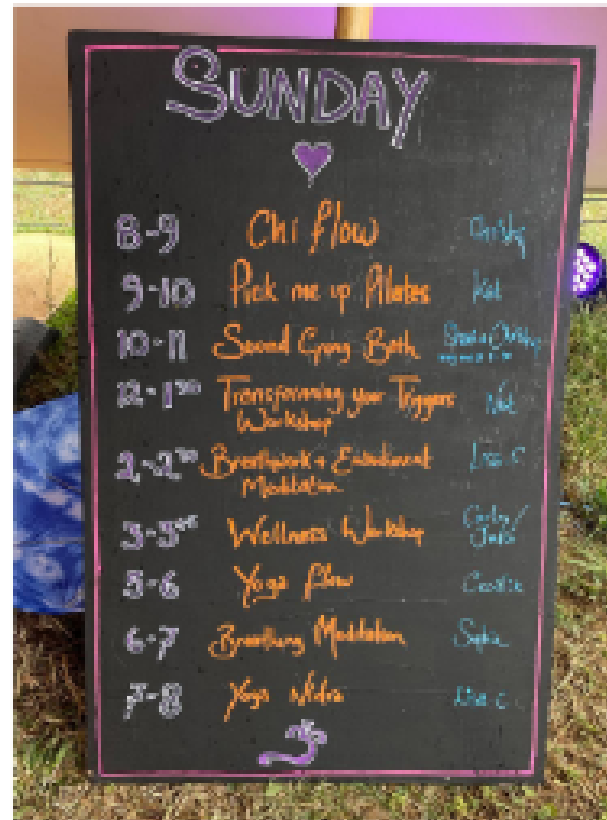 SUNDAY
8-9 Chi flow
9-10 Pick me up Pilates Kat
10-11 Sound Gong Bath
12-1³⁰ Transforming your Triggers Nat
Workshop
2-2³⁰ Breathwork + Embodiment Lisa C
Meditation
3-3⁴⁵ Wellness Workshop
5-6 Yoga flow
6-7 Breathing Meditation Sophie
7-8 Yoga Nidra